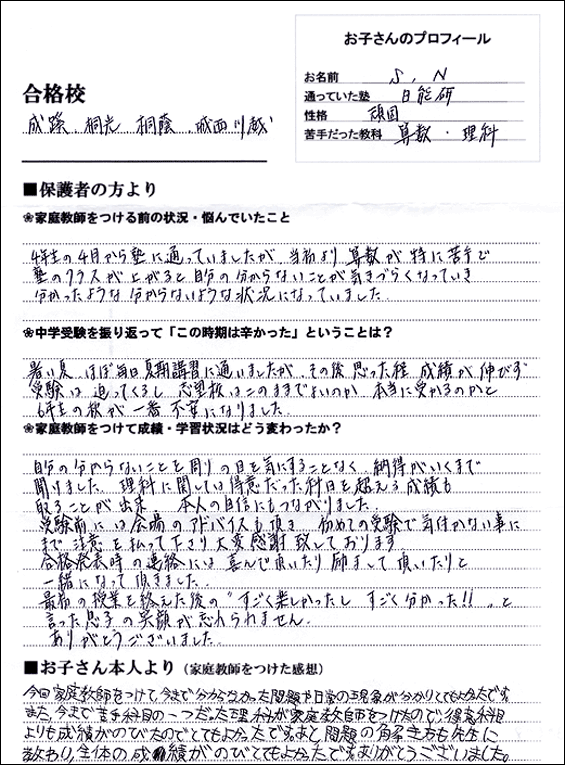 お子さんのプロフィール
お名前 S、N
通っていた塾 日能研
性格 頑固
苦手だった教科 算数・理科
合格校
成蹊、桐光 桐蔭、城西川越
■保護者の方より
❀家庭教師をつける前の状況・悩んでいたこと
4年生の4月から塾に通っていましたが、当初より 算数が特に苦手で
塾のクラスが上がると自分の分からないことが気きづらくなっていき
分かったような 分からないような状況になっていました。
❀中学受験を振り返って「この時期は辛かった」ということは?
暑い夏、ほぼ毎日夏期講習に通いましたが、その後 思った程 成績が伸びず
受験は 迫ってくるし 志望校はこのままでよいのか 本当に受かるのかと
6年生の秋が一番 不安になりました。
❀家庭教師をつけて成績・学習状況はどう変わったか?
自分の分からないことを周りの目を気にすることなく、納得がいくまで
聞けました。理科に関しては得意だった科目を超える成績も
取ることが出来 本人の自信にもつながりました。
受験前には会場のアドバイスも頂き 初めての受験で気付かない事に
まで 注意を払って下さり大変感謝致しております
合格発表時の連絡には喜んで頂いたり励まして頂いたりと
一緒になって頂きました。
最後の授業を終えた後の"すごく楽しかったし すごく分かった!!"と
言った息子の笑顔が忘れられません。
ありがとうございました。
■お子さん本人より(家庭教師をつけた感想)
今回家庭教師をつけて、今まで分からなかった問題や日常の現象が分かりとてもよかったです。
また、今まで苦手科目の一つだった理科が家庭教師をつけたので得意科目
よりも成績がのびたのでとてもよかったです。あと問題の解き方も先生に
教わり、全体の成績がのびてとてもよかったです。ありがとうございました。